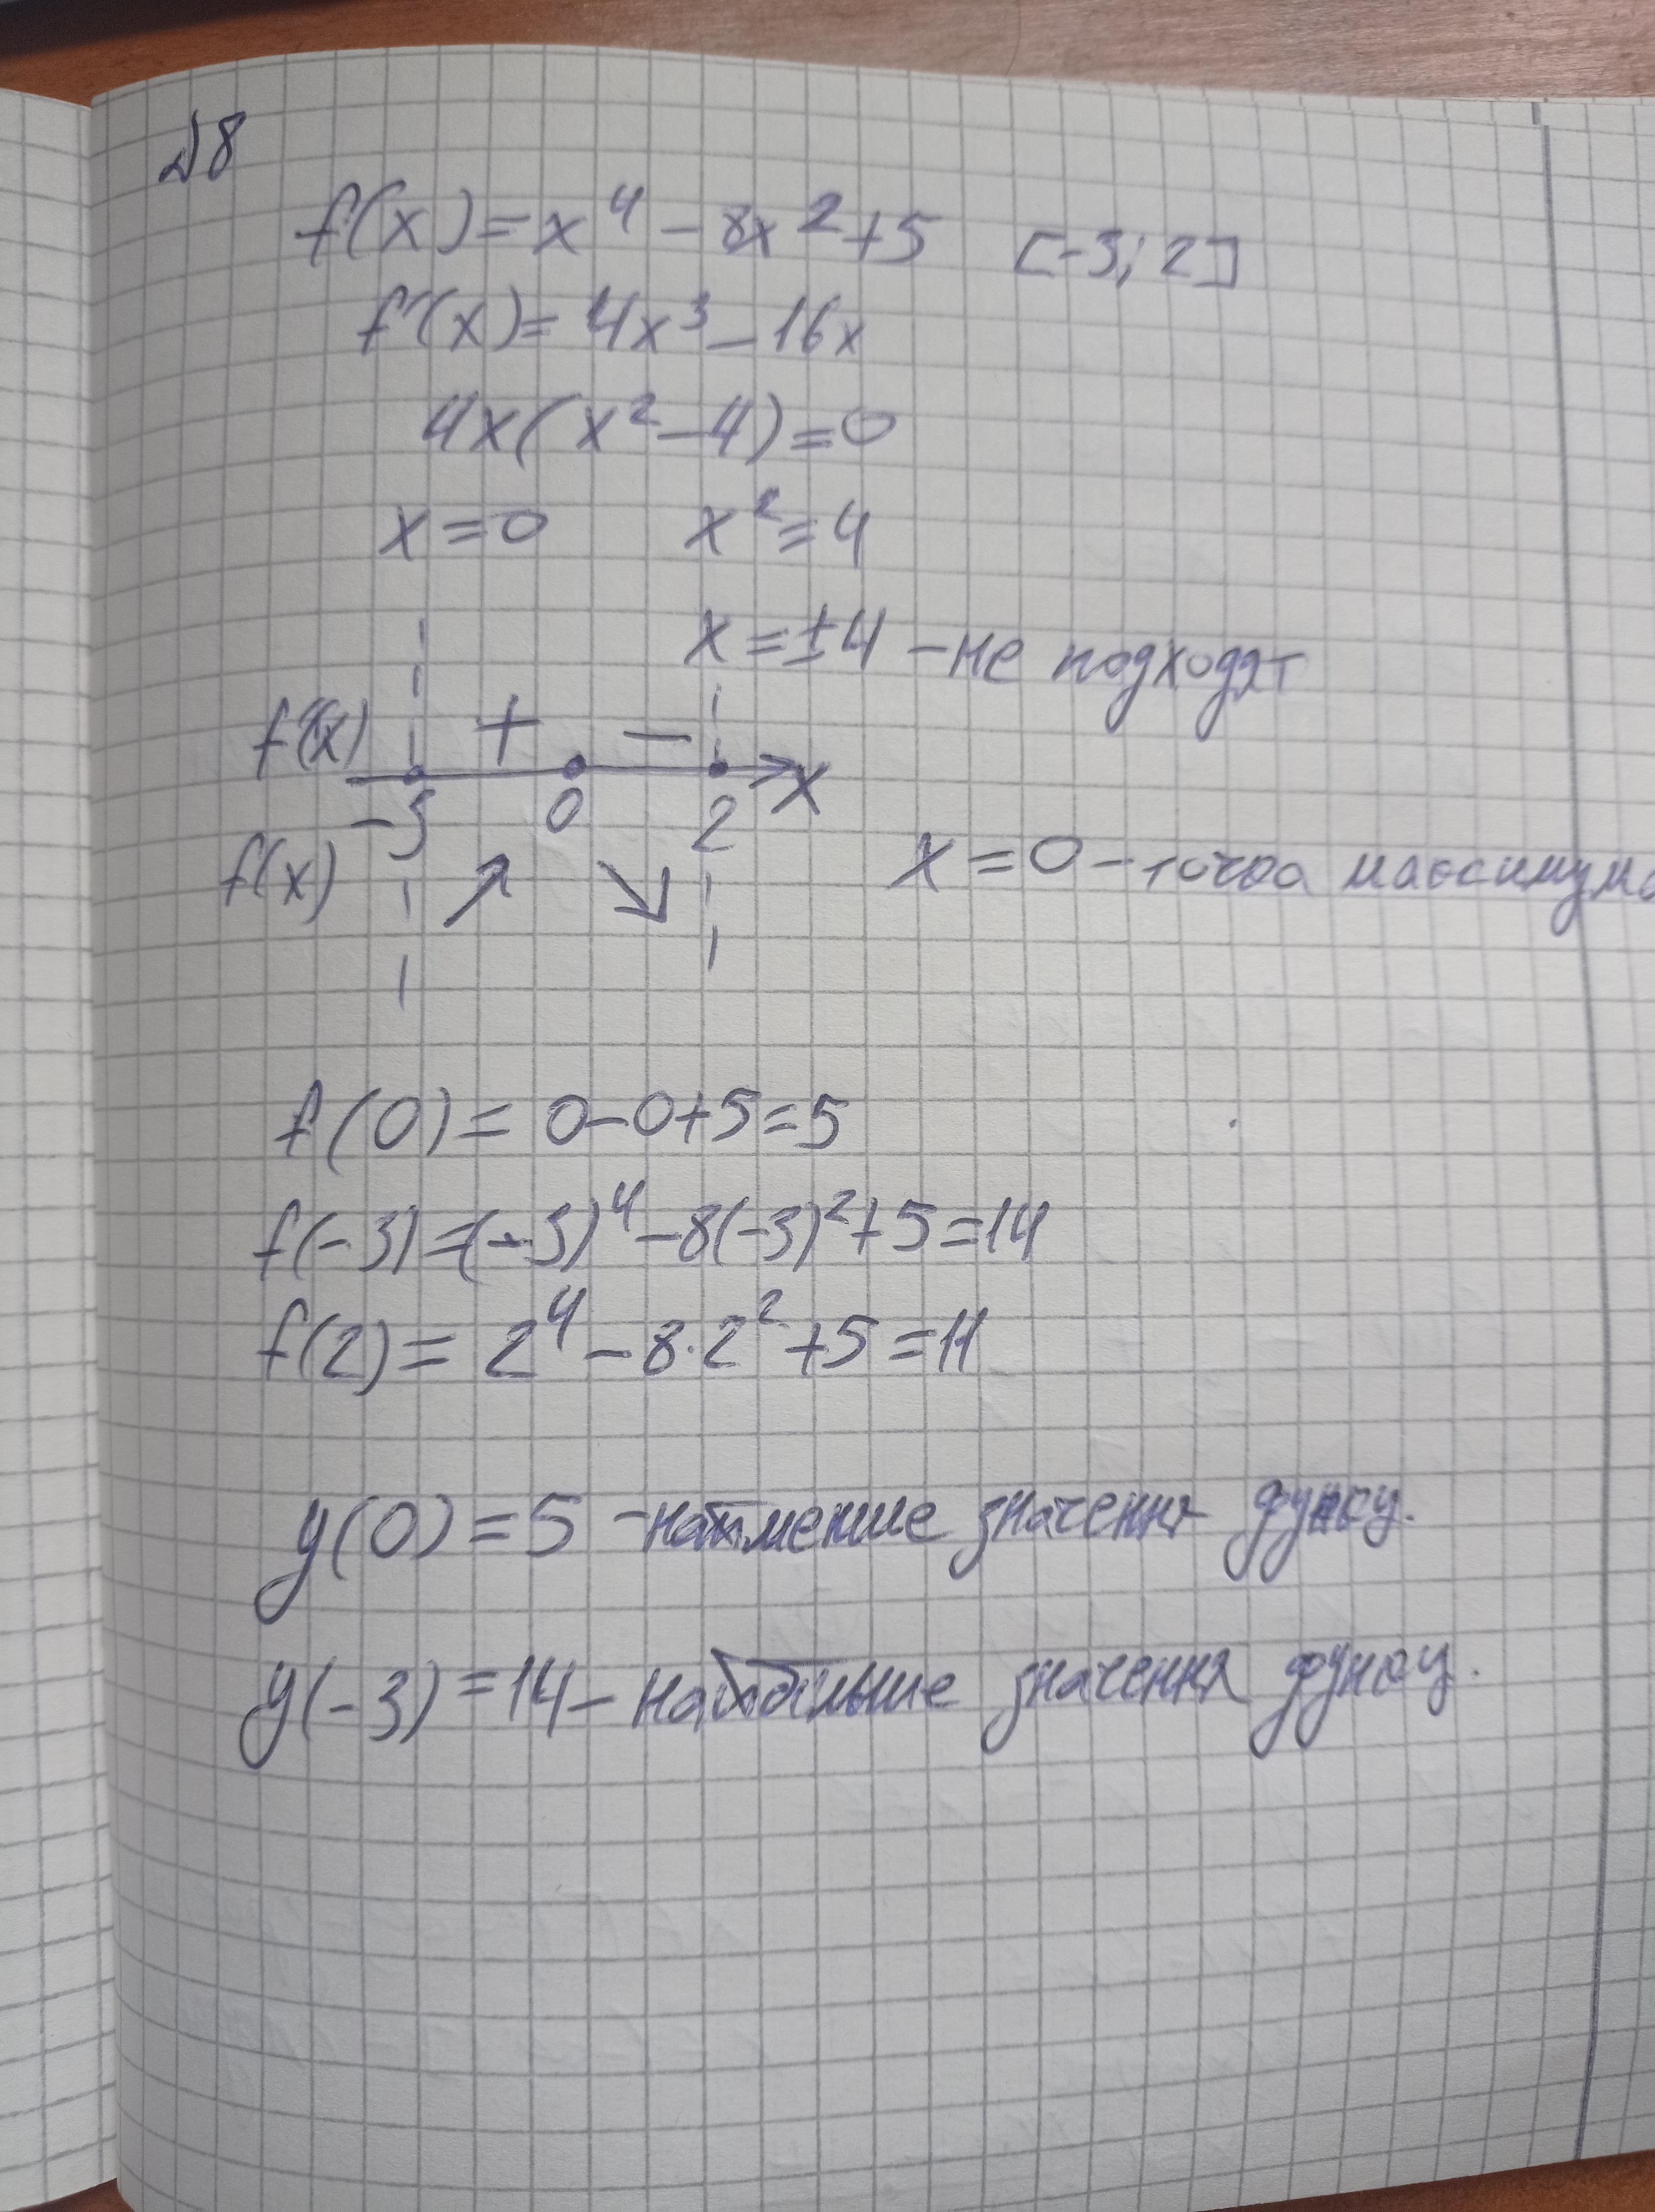 №8
f(x)=x⁴-8x²+5 [-3; 2]
f'(x)=4x³-16x
4x(x²-4)=0
x=0 x²=4
x=±4 -не подходят
f'(x) + - x
-3 0 2
f(x) ↗ ↘ x=0-точка максимума
f(0)=0-0+5=5
f(-3)=(-3)⁴-8(-3)²+5=14
f(2)=2⁴-8·2²+5=11
y(0)=5 -найменше значення функц.
y(-3)=14-найбільше значення функц.